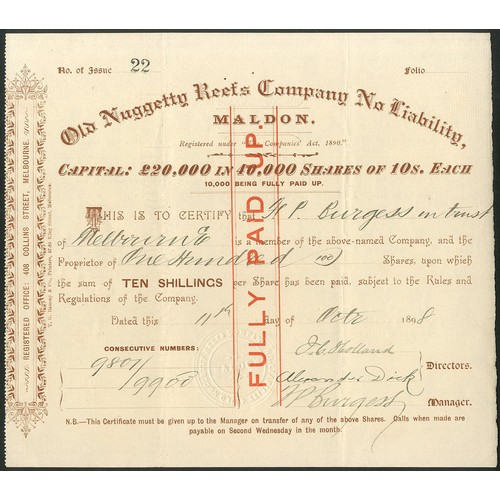 No. of Issue 22 Folio
Old Nuggetty Reefs Company No Liability,
MALDON.
Registered under " Companies' Act, 1890."
CAPITAL: £20,000 IN 40,000 SHARES OF 10s. EACH
10,000 BEING FULLY PAID UP.
THIS IS TO CERTIFY that H. P. Burgess in trust
of Melbourne is a member of the above-named Company, and the
Proprietor of One Hundred (100) Shares, upon which
the sum of TEN SHILLINGS per Share has been paid, subject to the Rules and
Regulations of the Company.
Dated this 11th day of Octr 1898
CONSECUTIVE NUMBERS:
9801/
/9900
J. C. Holland
Alexander Dick
Directors.
H P Burgess
Manager.
N.B.—This Certificate must be given up to the Manager on transfer of any of the above Shares. Calls when made are
payable on Second Wednesday in the month.
FULLY PAID UP.
REGISTERED OFFICE: 408 COLLINS STREET, MELBOURNE.